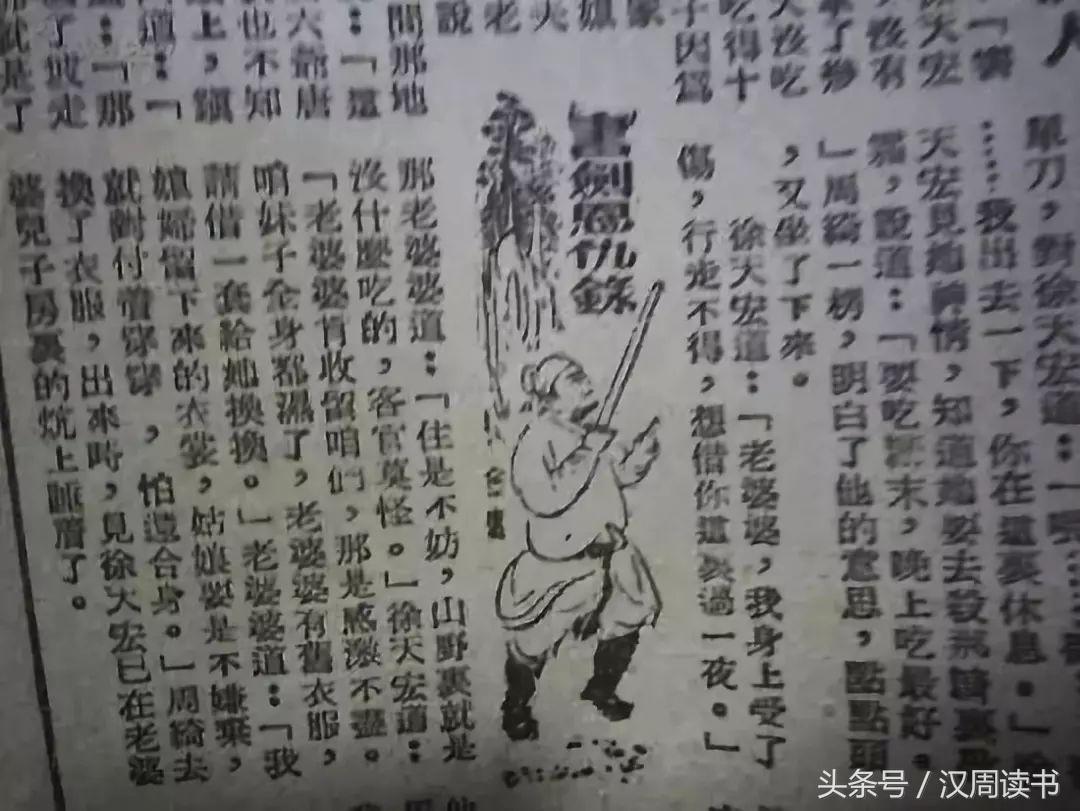 人
徐天宏
沒有
天沒吃
吃得十
子因爲
家
娘
夫
老
說
問那地
：「這
六爺唐
也不知
道：「
「那
了坡走
就是了
單刀，對徐天宏道：
……我出去一下，你在這裏休息。」
天宏見她神情，知道她要去
，說道：「要吃末，晚上吃最好。
」周綺一楞，明白了他的意思，點點頭
，又坐了下來。
徐天宏道：「老婆婆，我身上受了
傷，行走不得，想借你這裏過一夜。」
書劍恩仇錄
那老婆婆道：「住是不妨，山野裏就是
沒什麼吃的，客官莫怪。」徐天宏道：
「老婆婆肯收留咱們，那是感激不盡。
咱妹子全身都濕了，老婆婆有舊衣服，
請借一套給她換換。」老婆婆道：「我
媳婦留下來的衣裳，姑娘要是不嫌棄，
就對付着穿穿，怕還合身。」周綺去
換了衣服，出來時，見徐天宏已在老婆
婆兒子房裏的炕上睡着了。
头条号／汉周读书